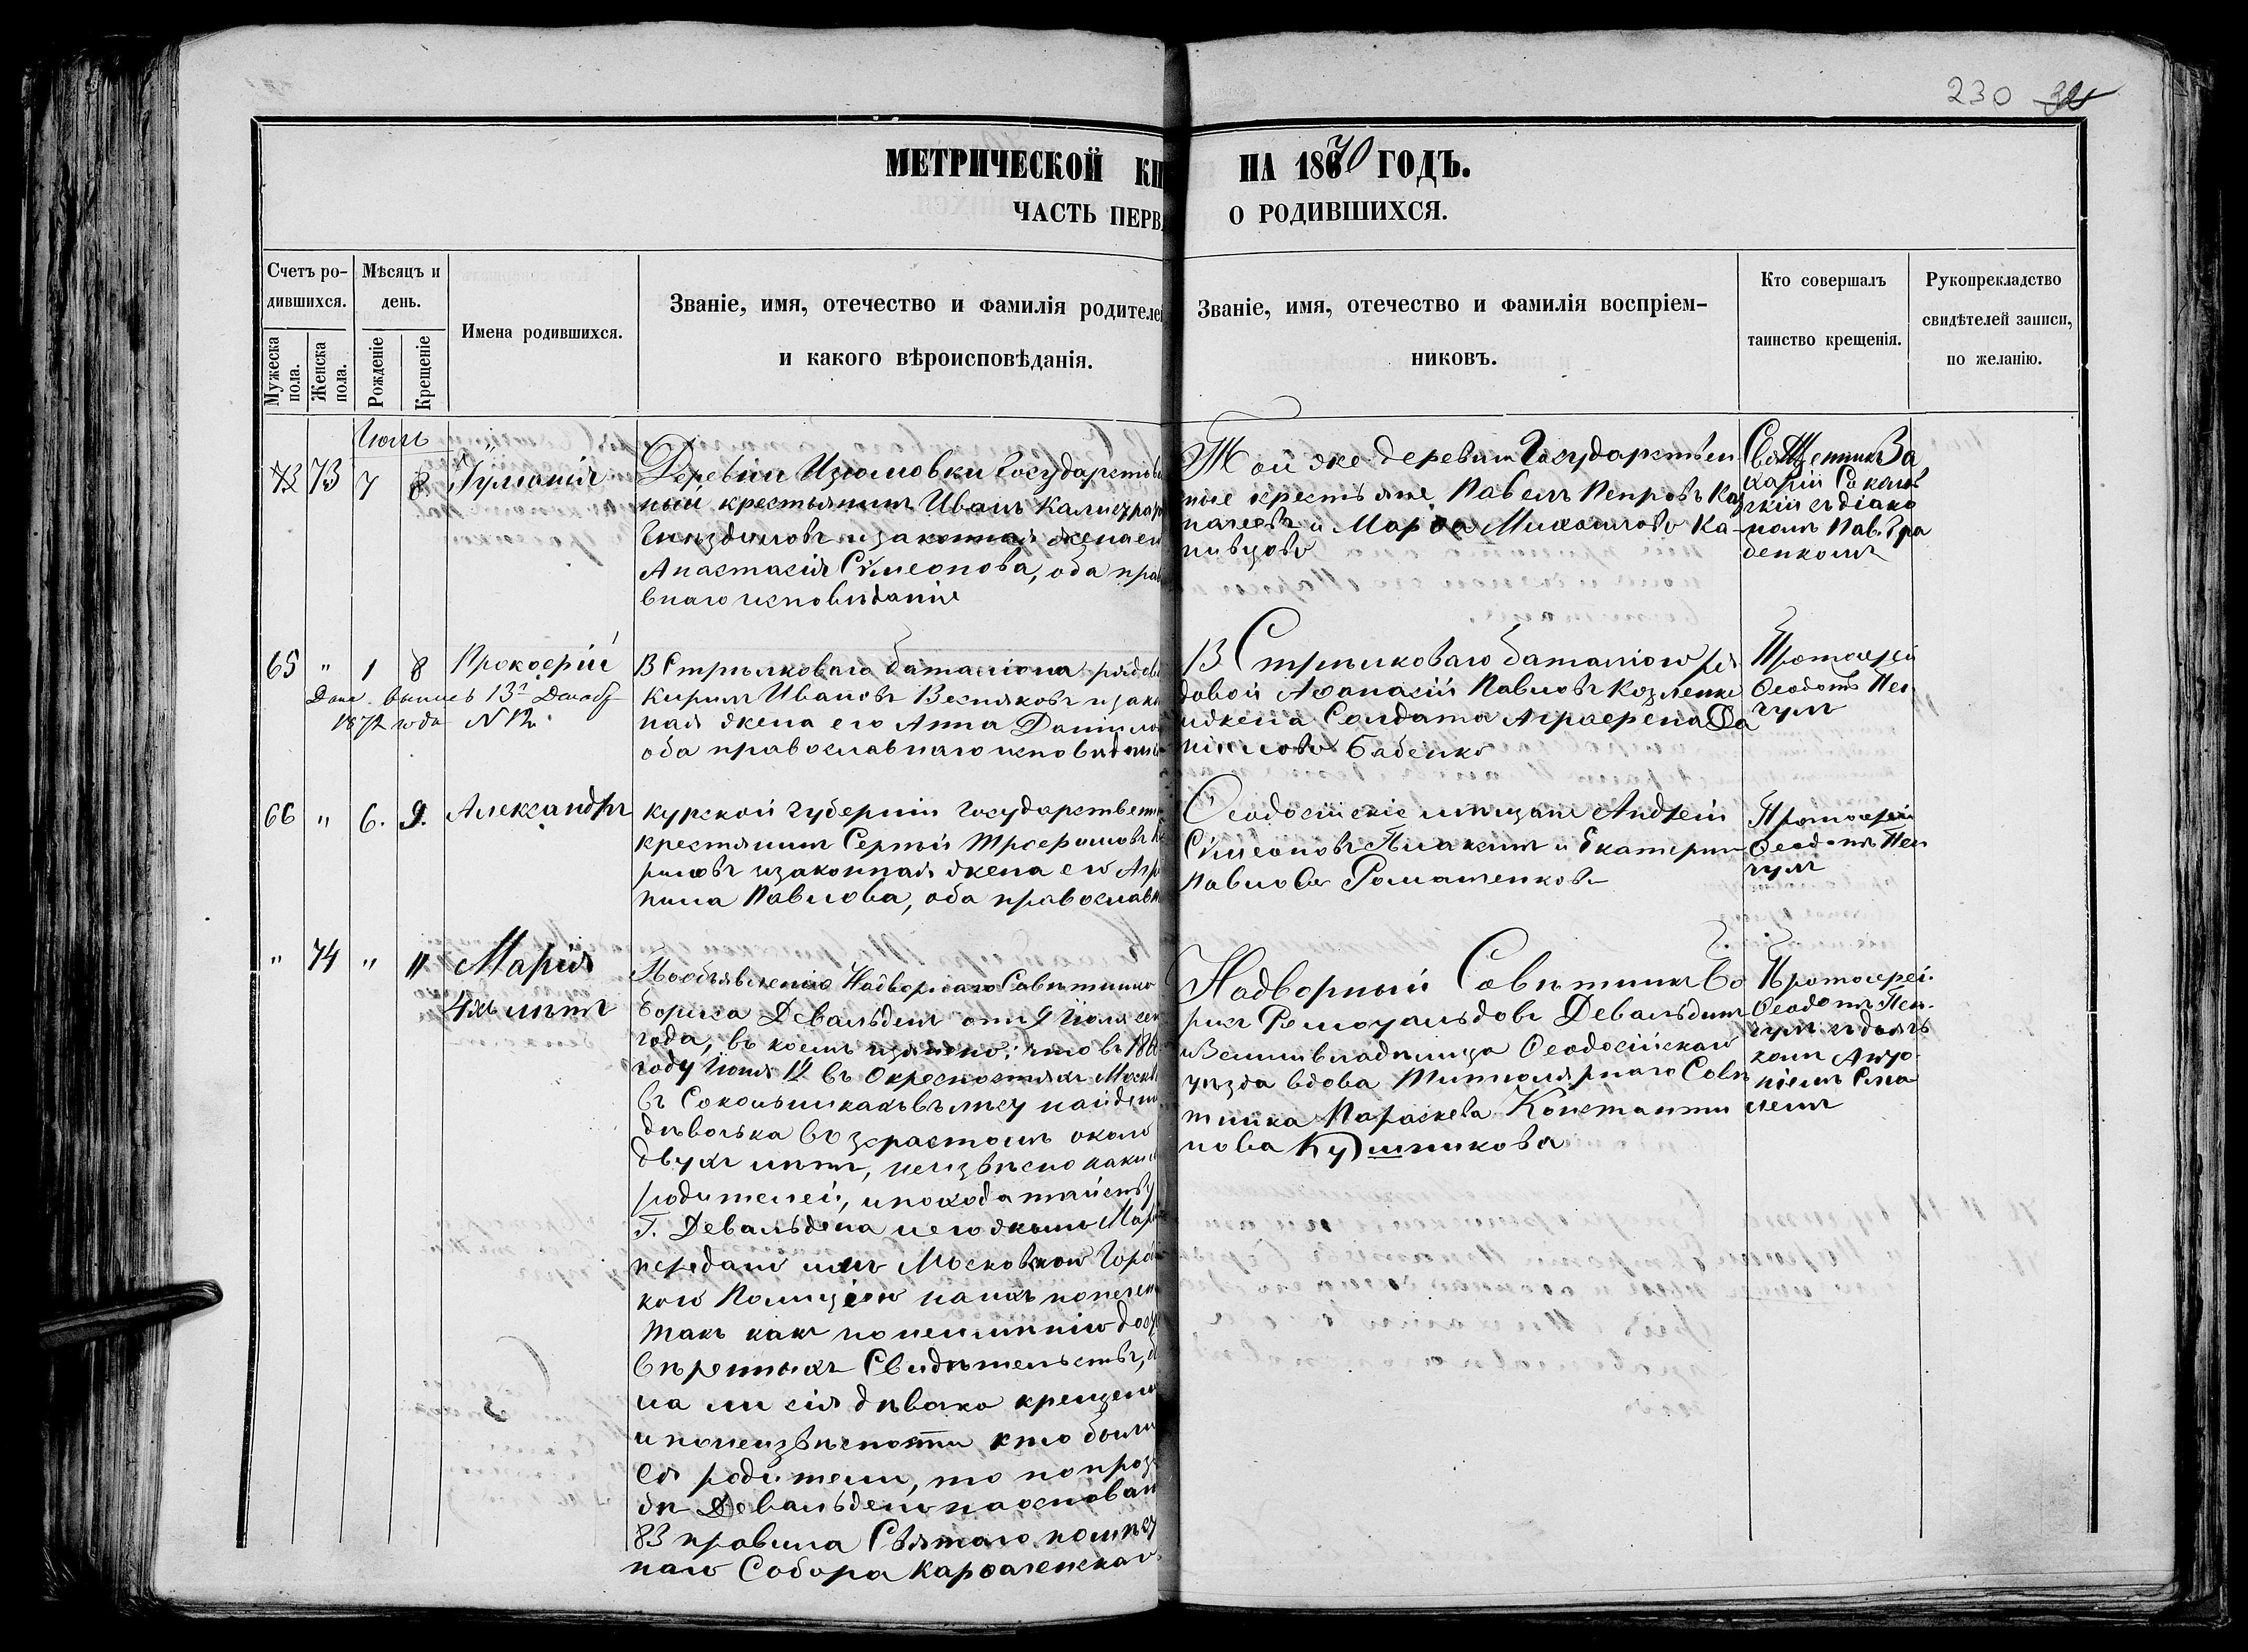 230
МЕТРИЧЕСКОЙ КН НА 1870 ГОДЪ.
ЧАСТЬ ПЕРВ О РОДИВШИХСЯ.
Счетъ ро-
дившихся.
Мужеска
пола.
Женска
пола.
Мѣсяцъ и
день.
Рожденіе
Крещеніе
Имена родившихся.
Званіе, имя, отечество и фамилія родителей
и какого вѣроисповѣданія.
Званіе, имя, отечество и фамилія воспріем-
никовъ.
Кто совершалъ
таинство крещенія.
Рукоприкладство
свидѣтелей записи,
по желанію.
Іюль
73 7 8 Іуліанія
Деревни Изюмовки Государствен
ный крестьянинъ Иванъ Калистрат
Гнѣздиловъ и законная жена его
Анастасія Симеонова, оба прав
внаго исповѣданія
Той же деревни Государствен
ные крестьяне Павелъ Петровъ
и Марѳа Михаилова Ка-
Священникъ За
харій
скій съ діако
номъ Пав. Гра
бенкомъ
65 " 1 8 Прокофій
Дана выпись 13го Декабр
1872 года N 12.
13 Стрѣлковаго баталіона рядовой
Кирилъ Ивановъ Весняковъ и закон
ная жена его Анна Даніилов
оба православнаго исповѣданія
13 Стрѣлковаго баталіона ря
довой Аѳанасій Павловъ Козленко
и жена Солдата Агрефена Да
ніилова Бабенко
Протоіерей
Ѳеодотъ Пен
чулъ
66 " 6. 9. Александръ
Курской губерніи Государствен
крестьянинъ Сергій Трофимовъ
риловъ и законная жена его Агр
пина Павлова, оба православн
Ѳеодосійскіе мѣщане Андрей
Симеоновъ Плаксинъ и Екатерина
Павлова Ромашенкова
Протоіерей
Ѳеодотъ Пен
чулъ
" 74 " 11 Марія
4хъ лѣтъ
По объявленію Надворнаго Совѣтника
Бориса Девальденъ отъ 9 Іюля сег
года, въ коемъ изъяснено: что въ 186
году Іюня 12 въ Окрестностяхъ Москв
въ Сокольникахъ въ лѣсу найдена
дѣвочка возрастомъ около
двухъ лѣтъ, неизвѣсно какихъ
родителей, и по ходатайству
Г. Девальдена и его жены Мар
передана имъ Московскою Город
кою Полиціею на ихъ попечен
такъ какъ по неимѣнію дос
вѣренныхъ Свидѣтельствъ, б
на ли сія дѣвочка крещена
и по неизвѣсности кто были
ея родители, то по прозь
бѣ Девальдена на основан
83 правила Святаго помѣст
наго Собора Карѳагенскаго
Надворный Совѣтникъ Бо
рисъ Ромуальдовъ Девальденъ
и Землевладѣлица Ѳеодосійскаго
уѣзда вдова Титулярнаго Совѣ
тника Параскева Константи
нова Кушникова
Протоіерей
Ѳеодотъ Пен
чулъ съ діа
кономъ Анто
ніемъ